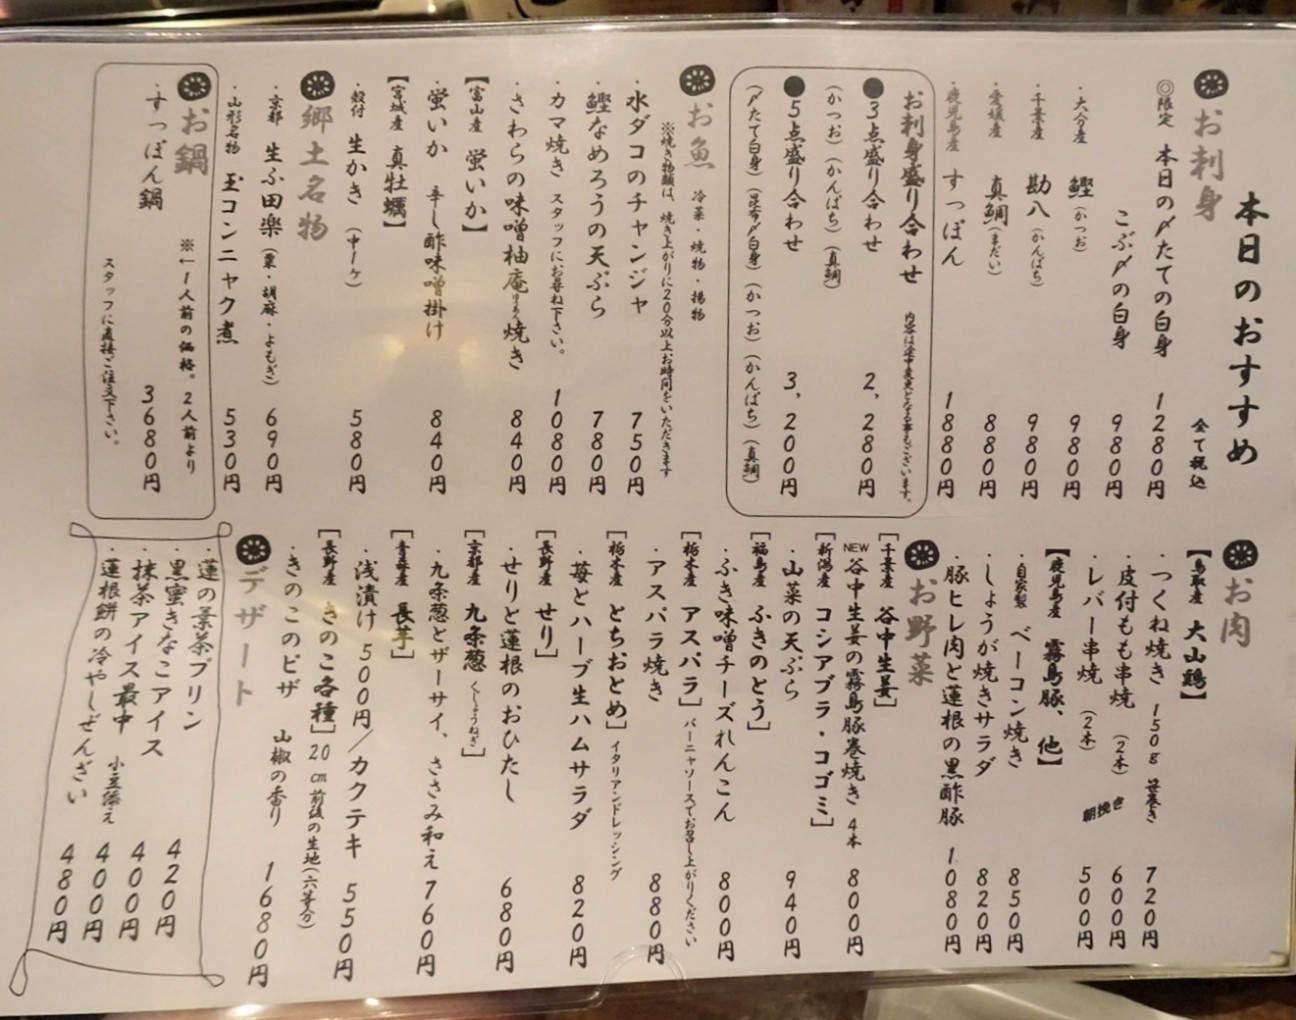 本日のおすすめ
全て税込
お刺身
◎限定 本日の〆たての白身 1280円
こぶ〆の白身 980円
・大分産 鰹(かつお) 980円
・千葉産 勘八(かんぱち) 980円
・愛媛産 真鯛(まだい) 880円
・鹿児島産 すっぽん 1880円
お刺身盛り合わせ 内容は途中変更となる事もございます。
●3点盛り合わせ 2,280円
(かつお)(かんぱち)(真鯛)
●5点盛り合わせ 3,200円
(〆たて白身)(昆布〆白身)(かつお)(かんぱち)(真鯛)
お魚 冷菜・焼物・揚物
※焼き物類は、焼き上がりに20分以上お時間をいただきます
・水ダコのチャンジャ 750円
・鰹なめろうの天ぷら 780円
・カマ焼き スタッフにお尋ね下さい。 1080円
・さわらの味噌柚庵焼き 840円
【富山産 蛍いか】
・蛍いか 辛し酢味噌掛け 840円
【宮城産 真牡蠣】
・殻付 生かき (中1ヶ) 580円
郷土名物
・京都 生ふ田楽(粟・胡麻・よもぎ) 690円
・山形名物 玉コンニャク煮 530円
お鍋 ※←1人前の価格。2人前より
・すっぽん鍋 3680円
スタッフに直接ご注文下さい。
お肉
【鳥取産 大山鶏】
・つくね焼き 150g 笹巻き 720円
・皮付もも串焼 (2本) 600円
・レバー串焼 (2本) 朝挽き 500円
【鹿児島産 霧島豚、他】
・自家製 ベーコン焼き 850円
・しょうが焼きサラダ 820円
・豚ヒレ肉と蓮根の黒酢豚 1080円
お野菜
[千葉産 谷中生姜]
NEW 谷中生姜の霧島豚巻焼き 4本 800円
[新潟産 コシアブラ・コゴミ]
・山菜の天ぷら 940円
[福島産 ふきのとう]
・ふき味噌チーズれんこん 800円
[栃木産 アスパラ] バーニャソースでお召し上がりください
・アスパラ焼き 880円
[栃木産 とちおとめ] イタリアンドレッシング
・苺とハーブ生ハムサラダ 820円
[長野産 せり]
・せりと蓮根のおひたし 680円
[京都産 九条葱(くじょうねぎ)]
・九条葱とザーサイ、ささみ和え 760円
[青森産 長芋]
・浅漬け 500円/カクテキ 550円
[長野産 きのこ各種] 20cm前後の生地(六等分)
・きのこのピザ 山椒の香り 1680円
デザート
・蓮の葉茶プリン 420円
・黒蜜きなこアイス 400円
・抹茶アイス最中 小豆添え 400円
・蓮根餅の冷やしぜんざい 480円